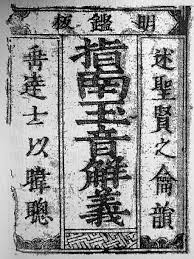 明鑑板
述聖賢之倫韻
指南玉音解義
達士以暐聰